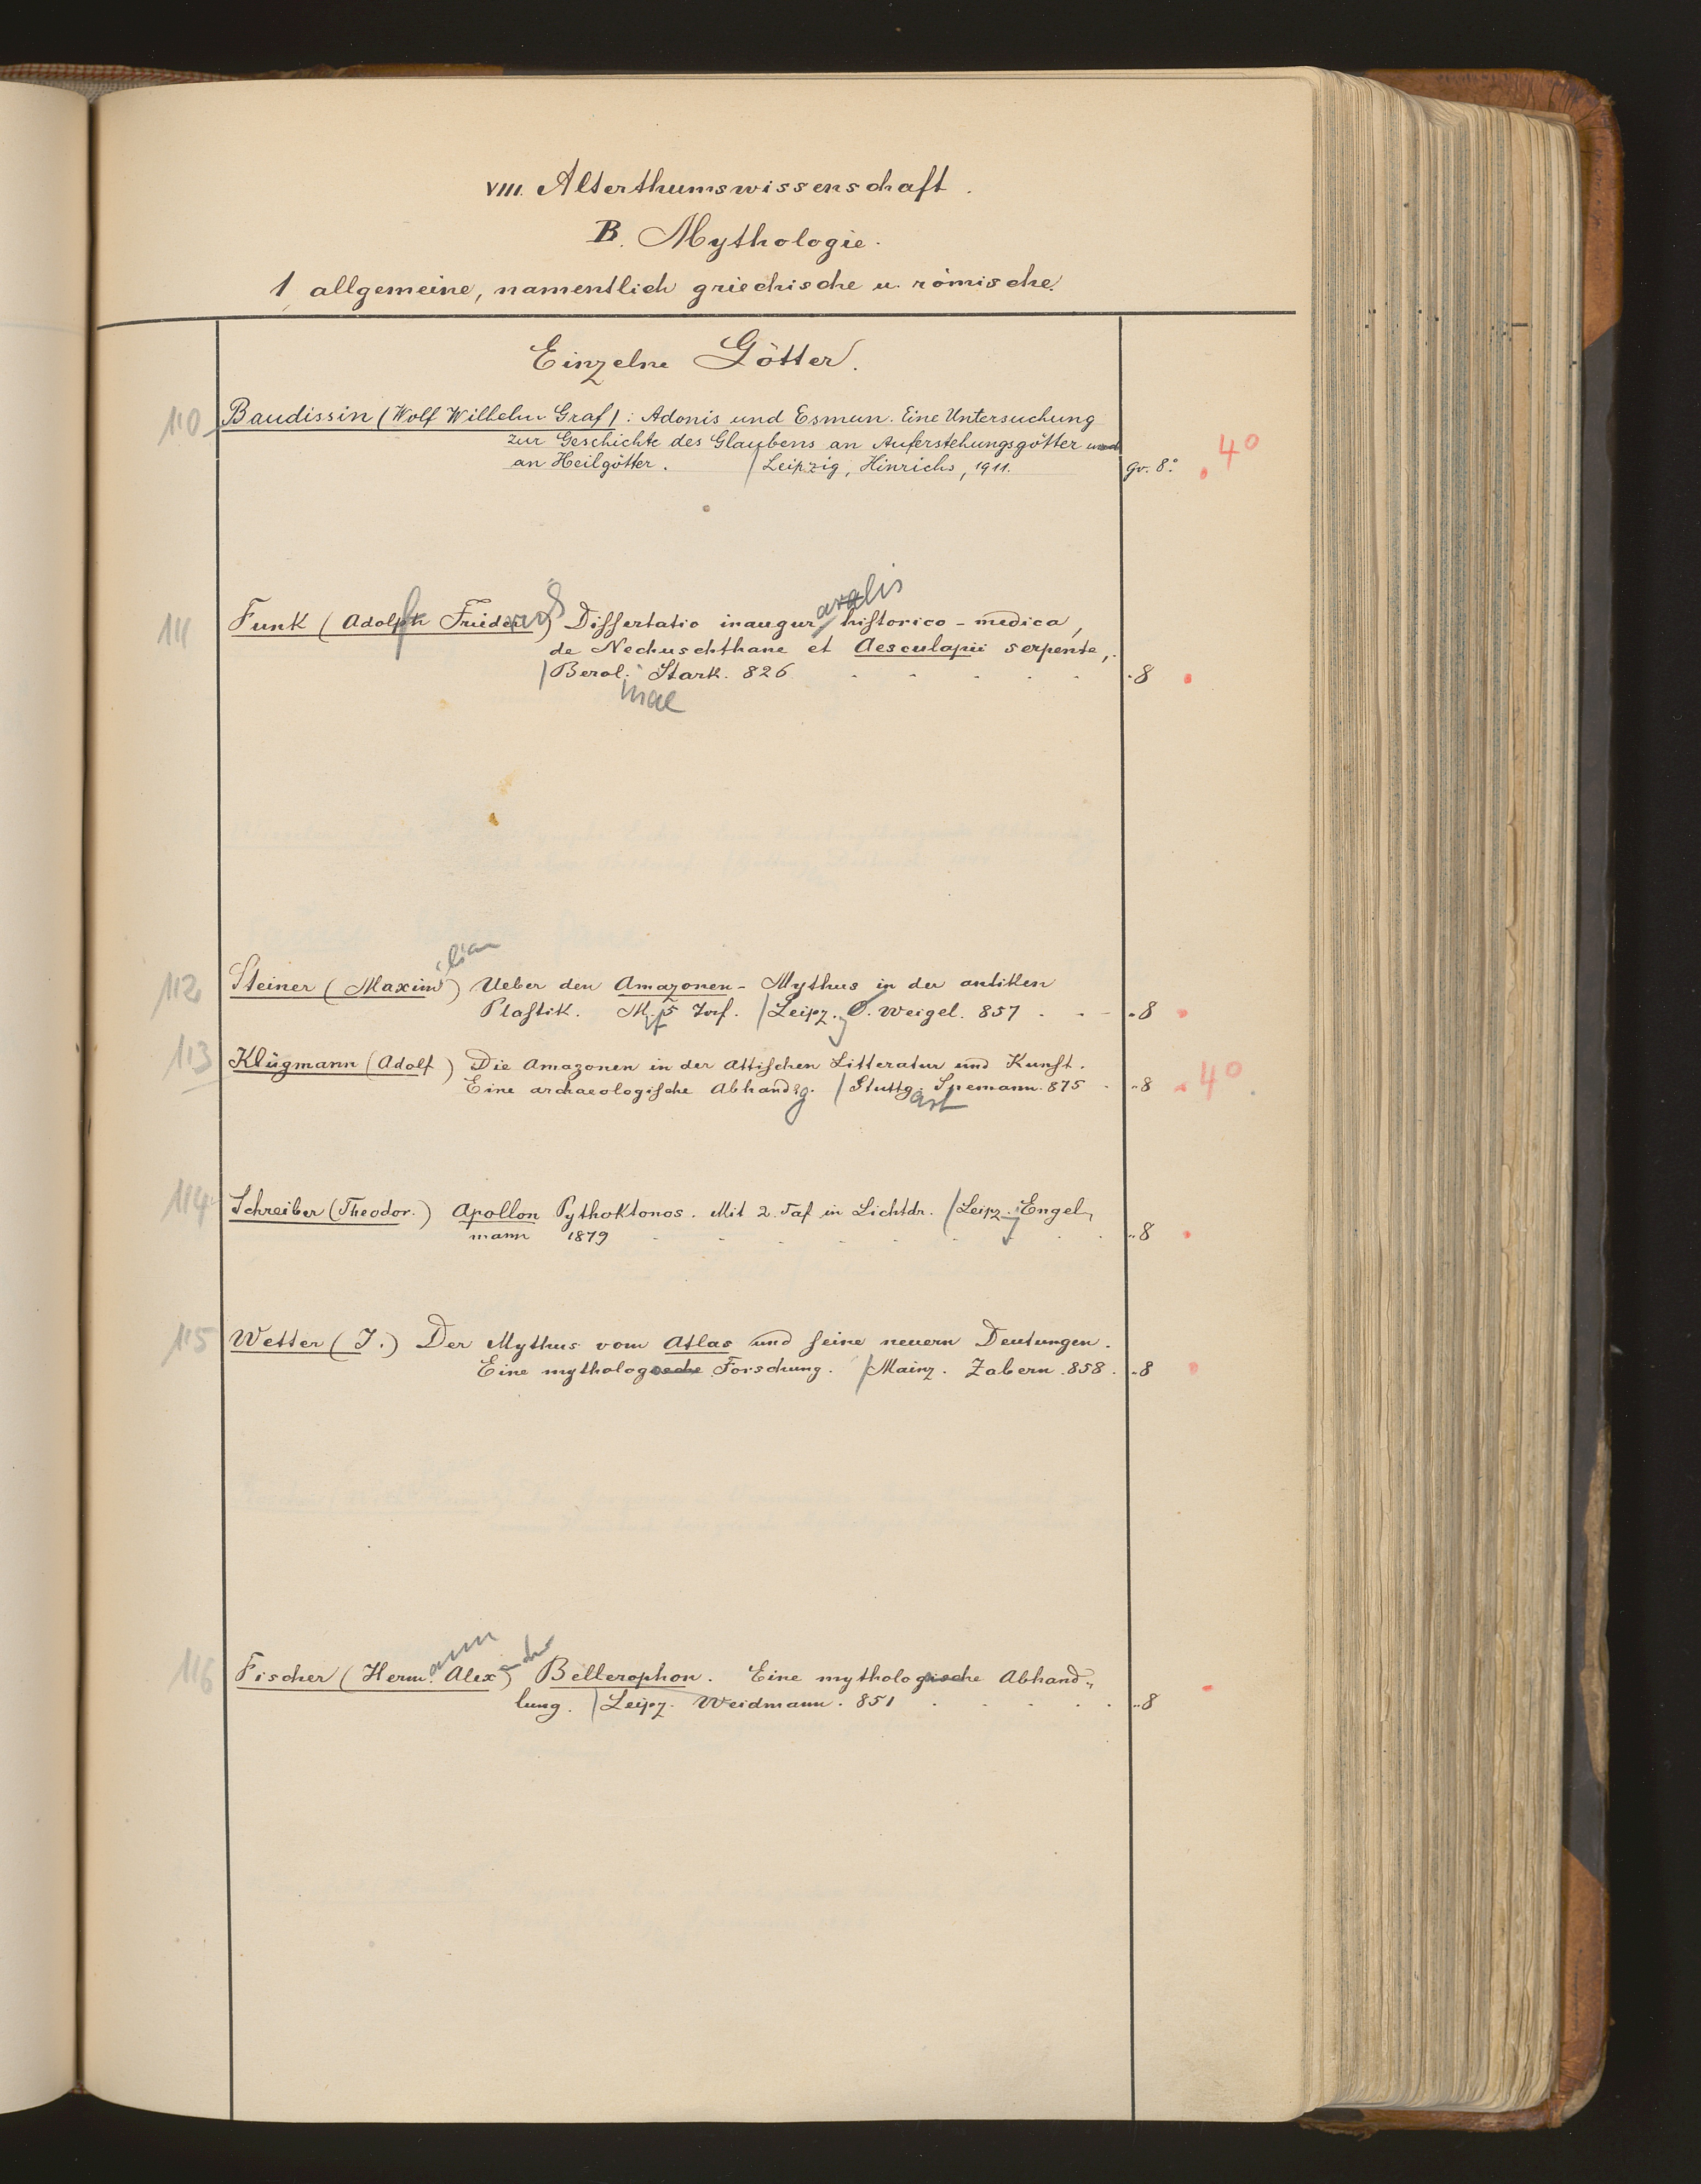 VIII. Alterthumswissenschaft.
B. Mythologie.
1 allgemeine, namentlich griechische u. römische.
Einzelne Götter.
110 Baudissin (Wolf Wilhelm Graf): Adonis und Esmun. Eine Untersuchung
zur Geschichte des Glaubens an Auferstehungsgötter und
an Heilgötter. / Leipzig, Hinrichs, 1911. gr. 8° 4°
aralis
111 Funk (Adolph Frieder) Dissertatio inaugur. historico-medica,
de Nechuschthane et Aesculapii serpente,
/ Berol. Stark. 826 8
inae
ilian
112 Steiner (Maxim) Ueber den Amazonen-Mythus in der antiken
Plastik. M. 5 Taf. / Leipz. O. Weigel. 857 8
113 Klügmann (Adolf) Die Amazonen in der attischen Litteratur und Kunst.
Eine archaeologische Abhandlg. / Stuttg. Spemann. 875 8 4°
art
114 Schreiber (Theodor.) Apollon Pythoktonos. Mit 2 Taf in Lichtdr. / Leipz. Engel„
mann 1879 8
115 Wetter (J.) Der Mythus vom Atlas und seine neuern Deutungen.
Eine mythologische Forschung. / Mainz. Zabern. 858. 8
ann ander
116 Fischer (Herm. Alex) Bellerophon. Eine mythologische Abhand„
lung. / Leipz. Weidmann. 851 8